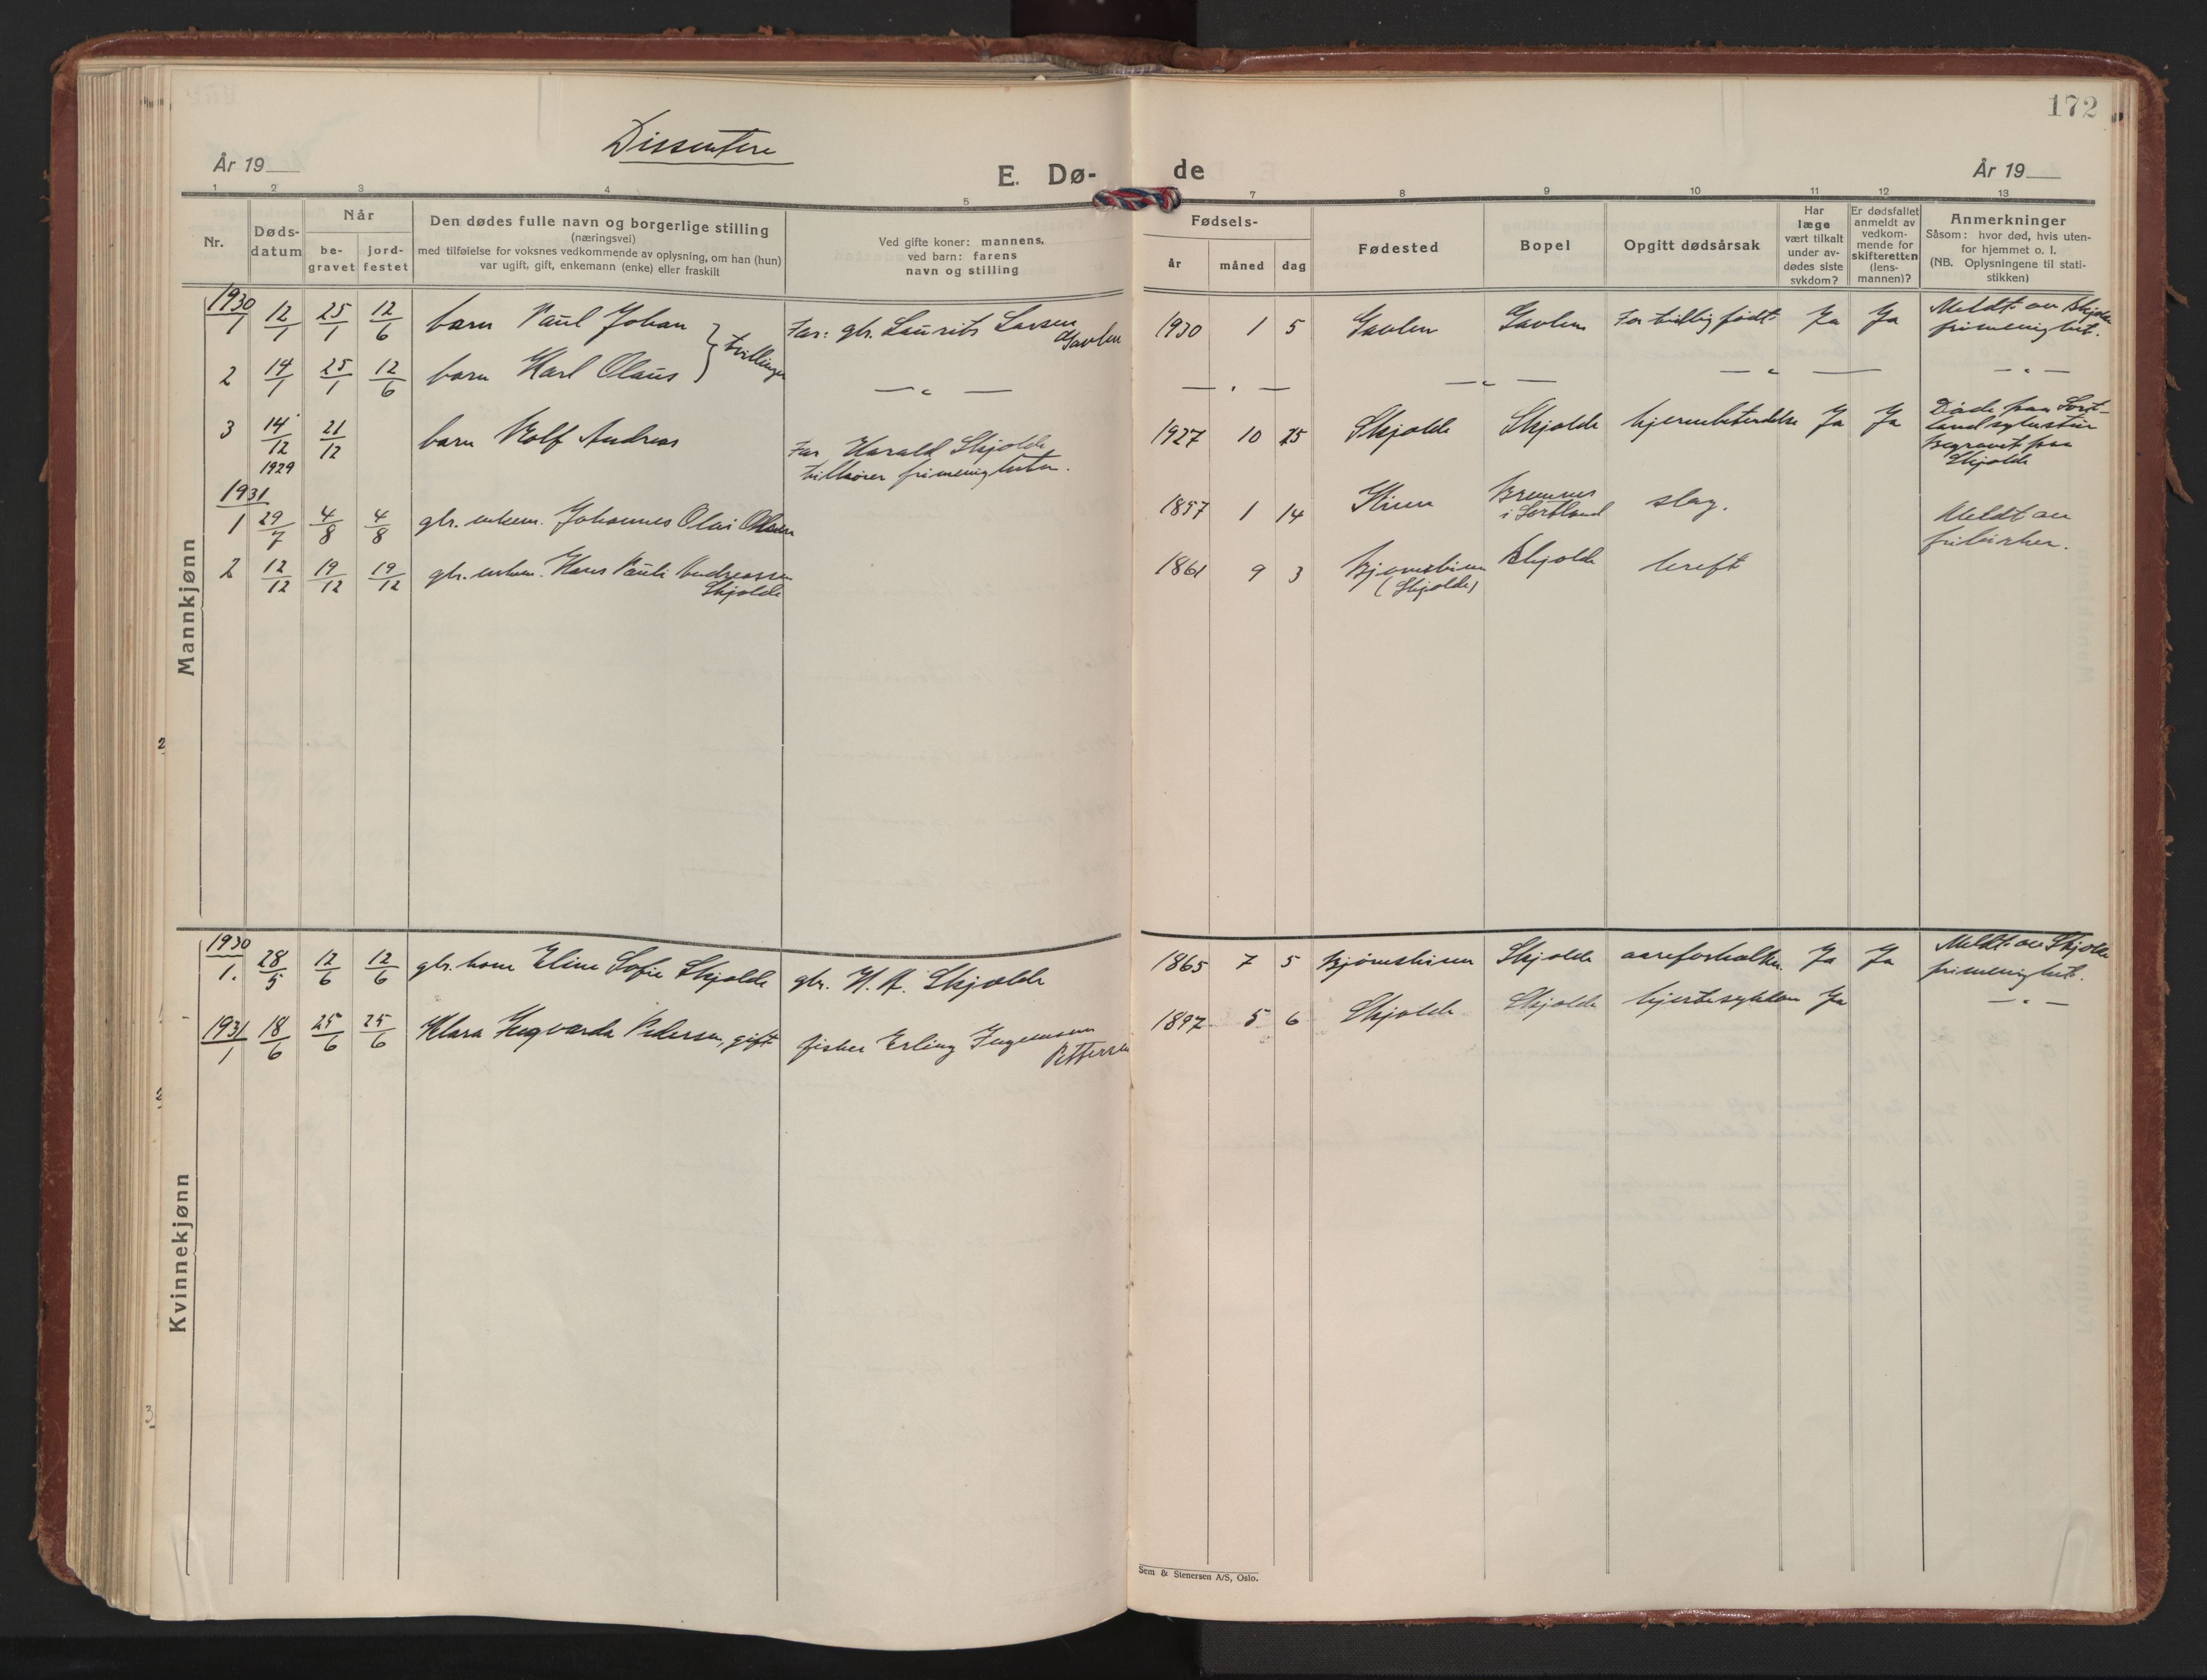 172
Dissentere
År 19
E. Dø-
de
År 19
1 2 3 4 5 7 8 9 10 11 12 13
Nr.
Døds-
datum
Når
be-
gravet
jord-
festet
Den dødes fulle navn og borgerlige stilling
(næringsvei)
med tilføielse for voksnes vedkommende av oplysning, om han (hun)
var ugift, gift, enkemann (enke) eller fraskilt
Ved gifte koner: mannens,
ved barn: farens
navn og stilling
Fødsels-
år
måned
dag
Fødested
Bopel
Opgitt dødsårsak
Har
læge
vært tilkalt
under av-
dødes siste
sykdom?
Er dødsfallet
anmeldt av
vedkom-
mende for
skifteretten
(lens-
mannen)?
Anmerkninger
Såsom: hvor død, hvis uten-
for hjemmet o. l.
(NB. Oplysningene til stati-
stikken)
Mannkjønn
1930
1 12/1 25/1 12/6 barn Paul Johan } tvillinger Far: gbr. Laurits Larsen Gavlen 1930 1 5 Gavlen Gavlen For tidlig født Ja Ja Meldt av Skjolde
frimenighet.
2 14/1 25/1 12/6 barn Karl Olaus — " — — " — — " — — " — — " —
3 14/12 1929 21/12 barn Rolf Andreas Far Harald Skjolde
tilhører frimenigheten. 1927 10 25 Skjolde Skjolde hjernebetendelse Ja Ja Døde paa Sort-
land sykestue
Begravet paa
Skjolde
1931
1 29/7 4/8 4/8 gbr. enkem. Johannes Olai Olsen 1857 1 14 Bremnes
i Sortland slag. Meldt av
frikirken.
2 12/12 19/12 19/12 gbr. enkem. Hans Pauli Andreassen
Skjolde 1861 9 3 Bjørnskinn
(Skjolde) Skjolde kreft
Kvinnekjønn
1930
1. 28/5 12/6 12/6 gbr. kone Eline Sofie Skjolde gbr. H. A. Skjolde 1865 7 5 Bjørnskinn Skjolde aareforkalkn. Ja Ja Meldt av Skjolde
frimenighet.
1931
1 18/6 25/6 25/6 Klara Ingvarda Pedersen, gift fisker Erling Ingemann
Pettersen 1897 5 6 Skjolde Skjolde hjertesykdom Ja — " —
Sem & Stenersen A/S, Oslo.